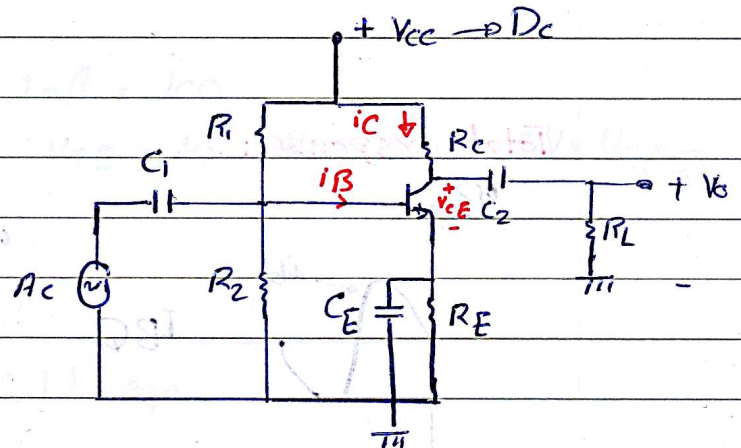 + Vcc → Dc
R1
iC ↓
Rc
C1
iB
+
VCE
-
C2
+ Vo
RL
-
Ac
R2
CE
RE